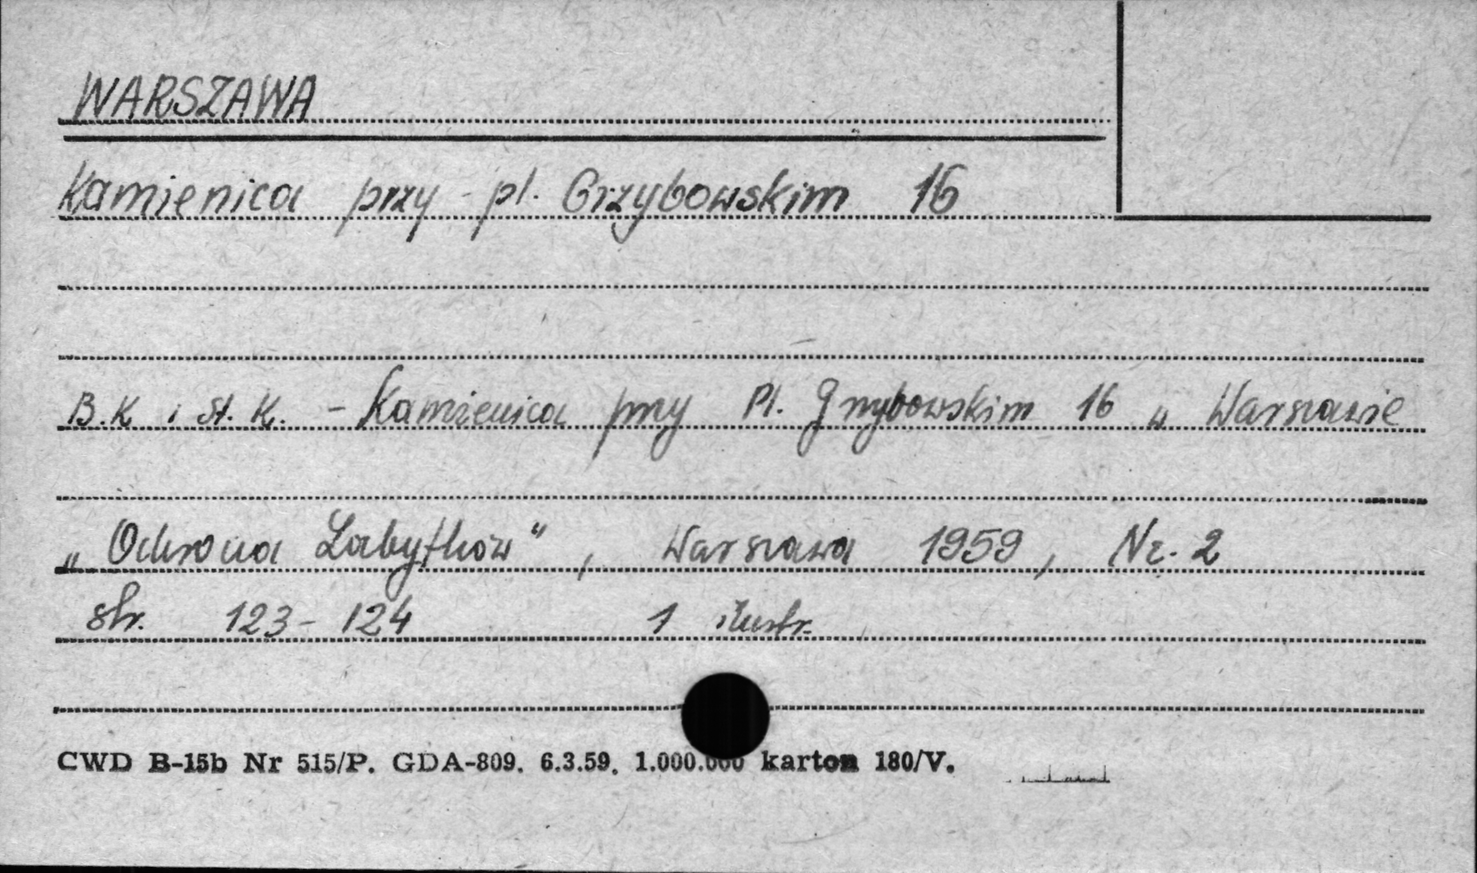 WARSZAWA
Kamienica przy pl. Grzybowskim 16
B.K i St. K. - Kamienica przy Pl. Grzybowskim 16 w Warszawie
„Ochrona Zabytków", Warszawa 1959, Nr. 2
str. 123-124 1 ilustr.
CWD B-15b Nr 515/P. GDA-809. 6.3.59. 1.000.000 karton 180/V.